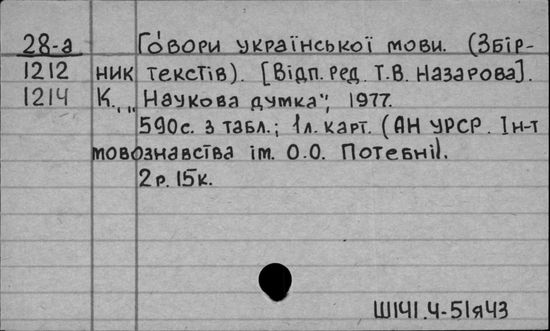 28-а Го́вори української мови. (Збір-
1212 ник текстів). [Відп. ред. Т.В. Назарова].
1214 К., „Наукова думка", 1977.
590с. з табл.; 1л. карт. (АН УРСР. Ін-т
мовознавства ім. О.О. Потебні).
2р. 15к.
Ш141.4-51я43